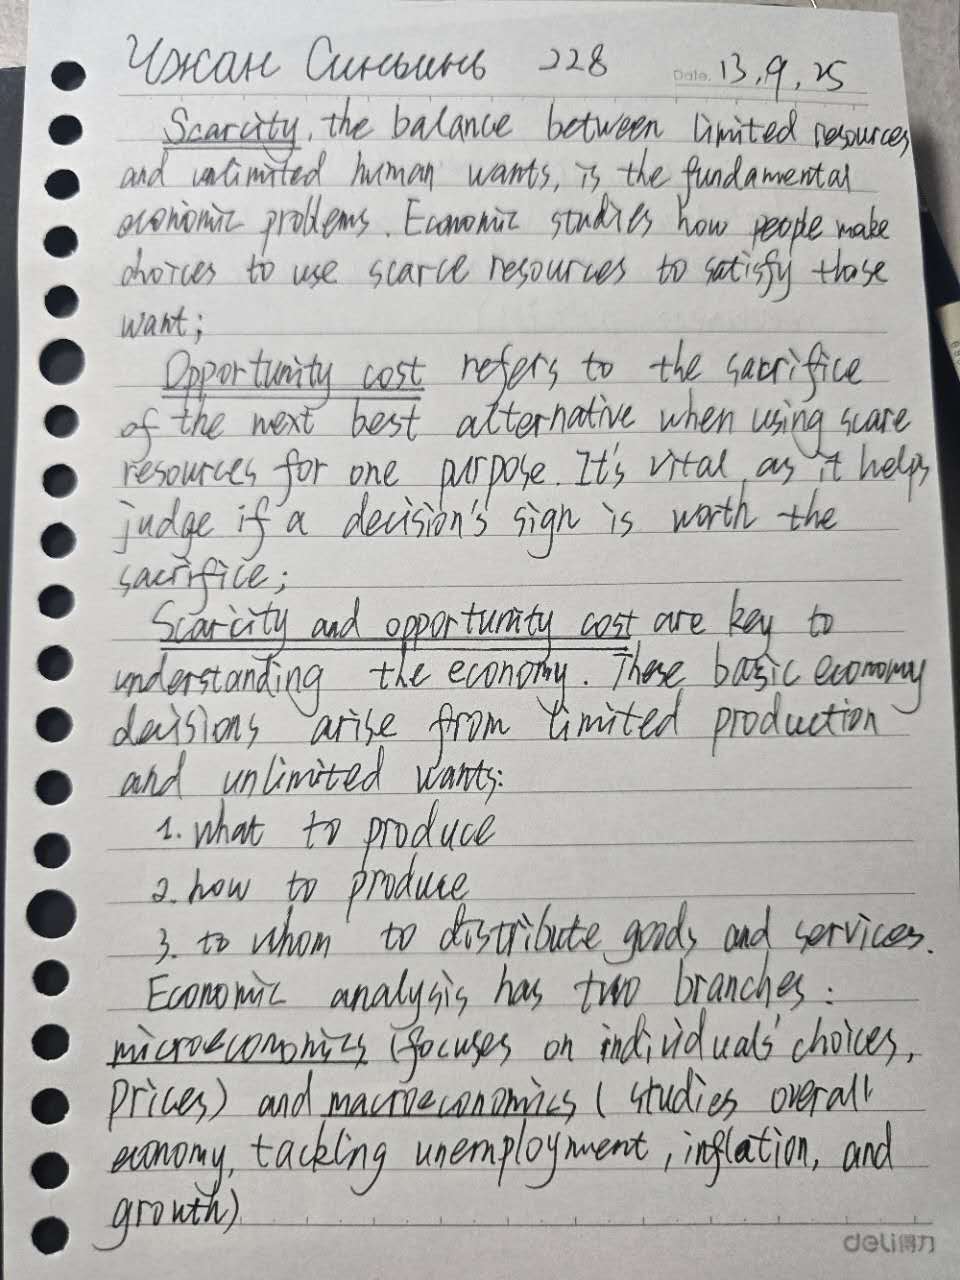 Чжан Синьинь 228 Date. 13.9.25
Scarcity, the balance between limited resources
and unlimited human wants, is the fundamental
economic problems. Economic studies how people make
choices to use scarce resources to satisfy those
want;
Opportunity cost refers to the sacrifice
of the next best alternative when using scare
resources for one purpose. It's vital as it helps
judge if a decision's sign is worth the
sacrifice;
Scarcity and opportunity cost are key to
understanding the economy. These basic economy
decisions arise from limited production
and unlimited wants:
1. what to produce
2. how to produce
3. to whom to distribute goods and services.
Economic analysis has two branches:
microeconomics (focuses on individuals' choices,
prices) and macroeconomics (studies overall
economy, tackling unemployment, inflation, and
growth)
deli得力